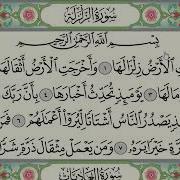 سُورَةُ الزَّلْزَلَةِ
بِسْمِ اللَّهِ الرَّحْمَٰنِ الرَّحِيمِ
الْأَرْضُ زِلْزَالَهَا ١ وَأَخْرَجَتِ الْأَرْضُ أَثْقَالَهَا
مَا لَهَا ٣ يَوْمَئِذٍ تُحَدِّثُ أَخْبَارَهَا ٤ بِأَنَّ رَبَّكَ
يَصْدُرُ النَّاسُ أَشْتَاتًا لِّيُرَوْا أَعْمَٰلَهُمْ ٦
ذَرَّةٍ خَيْرًا يَرَهُ ٧ وَمَن يَعْمَلْ مِثْقَالَ ذَرَّةٍ شَرًّا
سُورَةُ العَادِيَاتِ